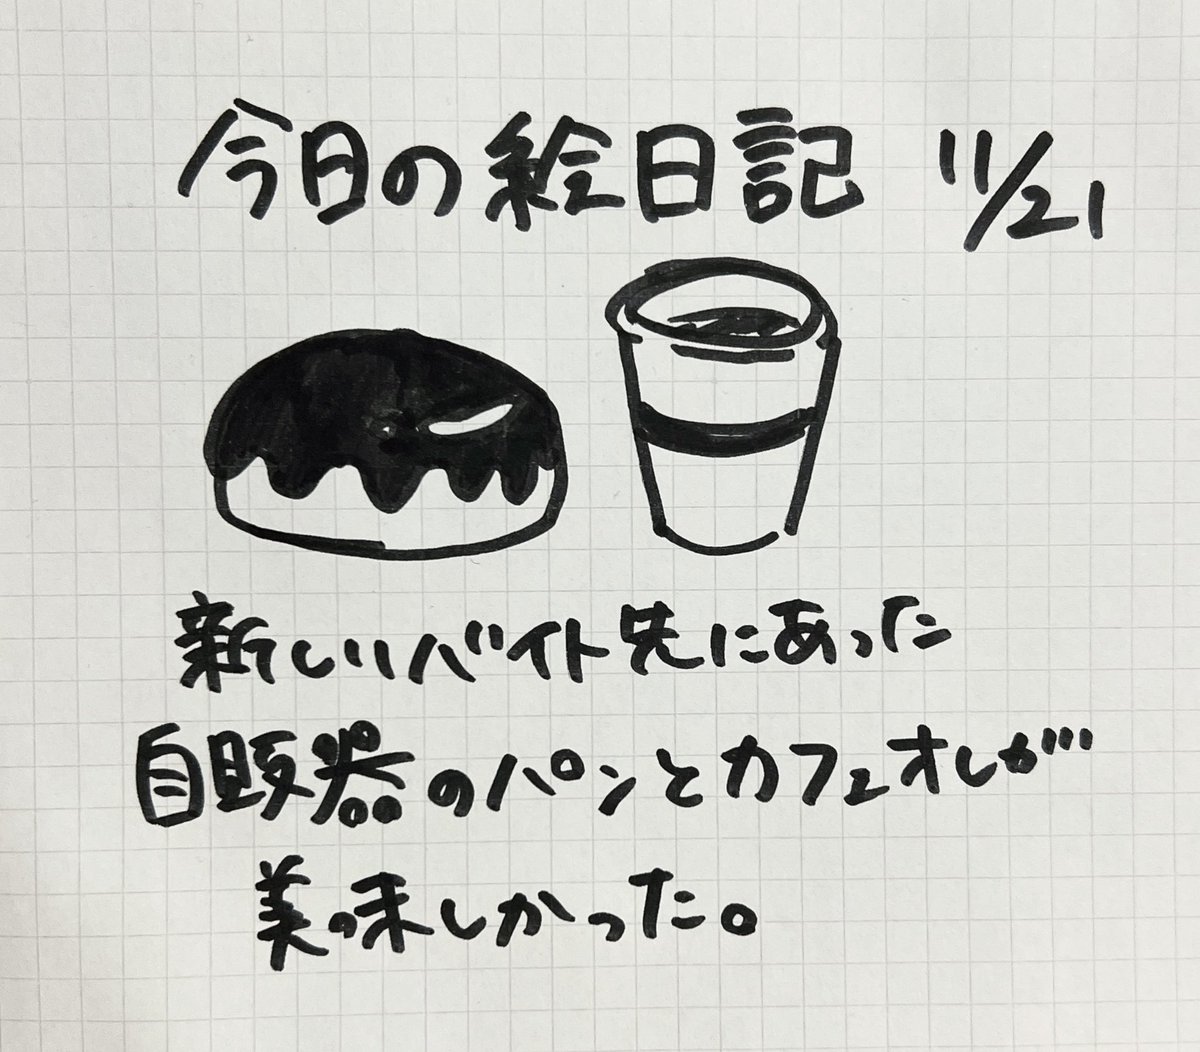 今日の絵日記 11/21
新しいバイト先にあった
自販器のパンとカフェオレが
美味しかった。